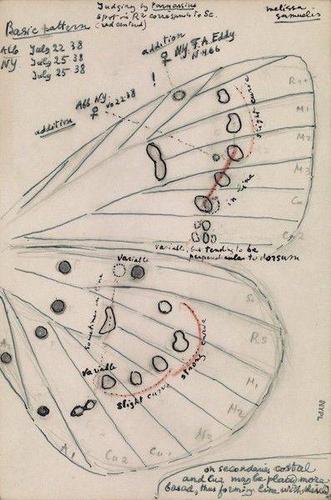 Basic pattern
Alb July 22 38
NY July 25 38
July 25 38
Judging by
spot in R2 corresponds to Sc.
melissa
samuelis
addition
♀ NY. F. A. Eddy
N-4.66
!
addition
Alb NY
♀ 22 38
slight curve
in line
M1
M2
M3
Cu
Cu2
variable, but tending to be
perpendicular to dorsum
variable
sometimes in line
variable
slight curve
strong curve
Sc
RS
M1
M2
M3
Cu1
Cu2
A1
on secondaries costal
and Cu2 may be placed more
basad, thus forming line with discal